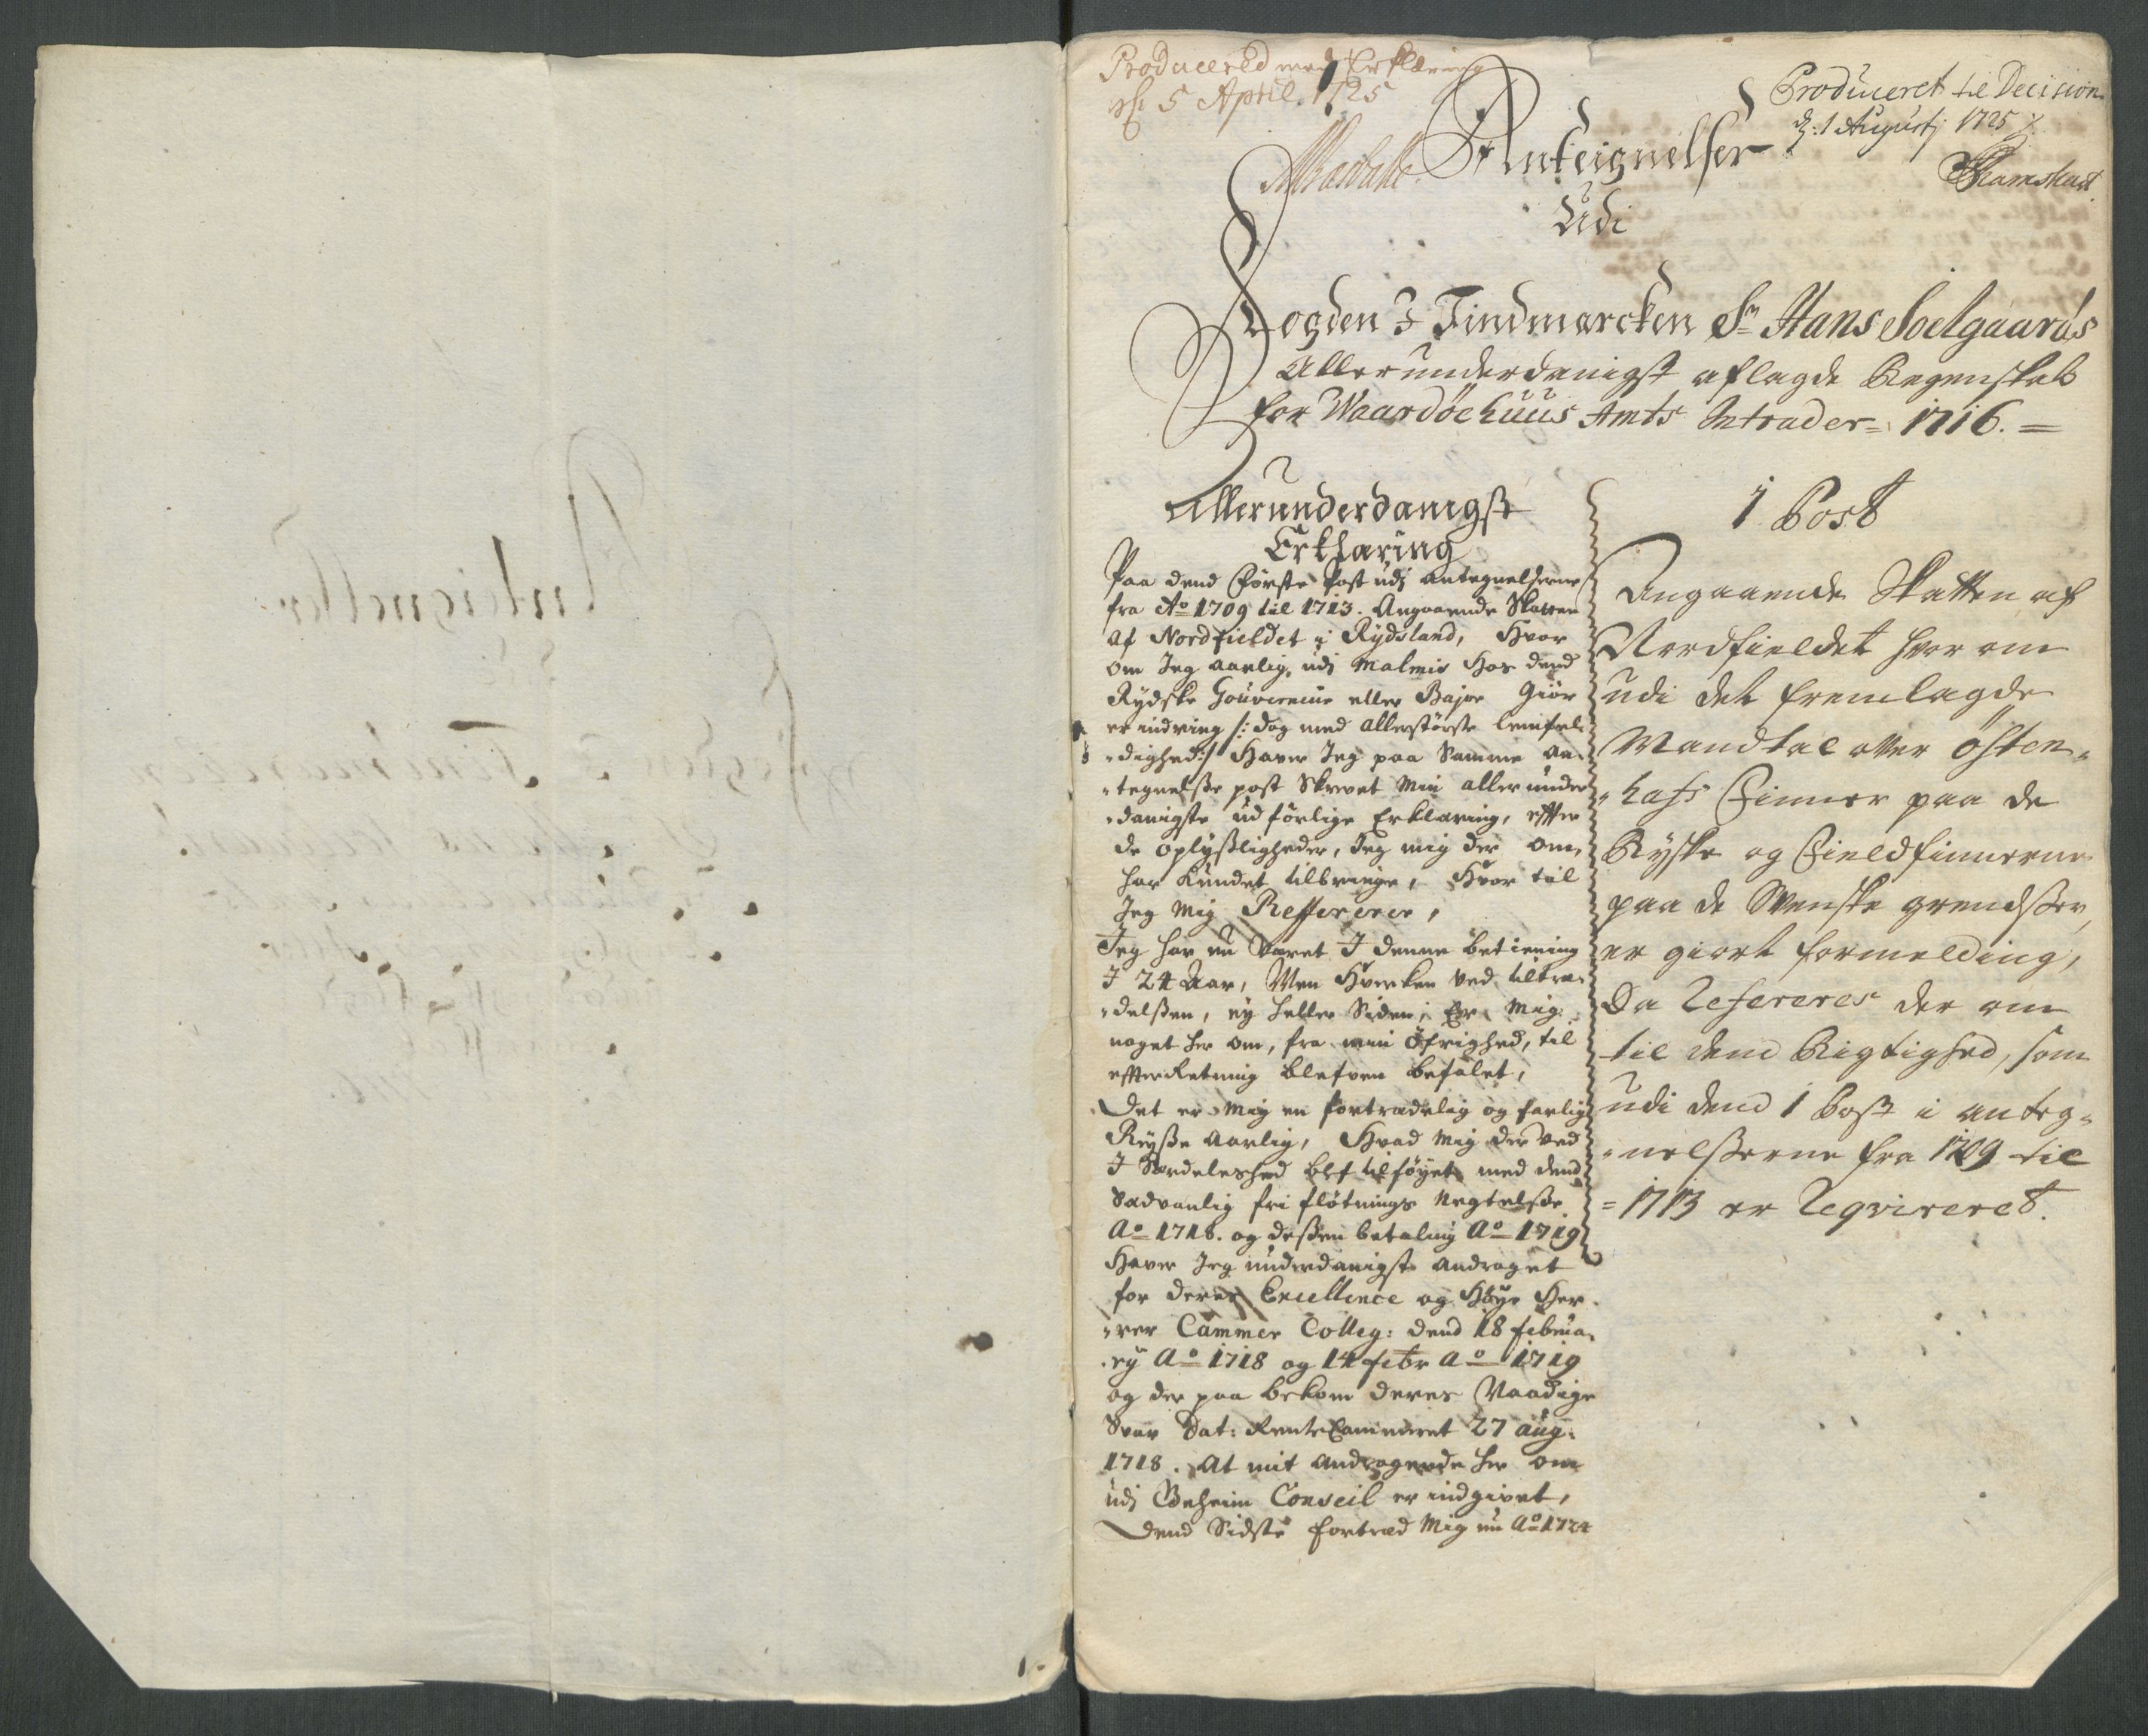 Produceret med Erklæring
d: 5 April 1725
Produceret til Decision
d: 1 Augusti 1725
Ramshart
Anteignelser
Udi
Fogden I Findmarcken Sr Hans Soelgaards
Allerunderdanigst aflagde Regenskab
for Waardøehuus Amts Intrader 1716.
Allerunderdanigst
Erklaring
Paa dend Første Post udj antegnelserne
fra Ao 1709 til 1713. Angaaende Skatten
af Nordfieldet i Rydsland, Hvor
om Jeg aarlig, udj Malmis Hos dend
Rydske Gouverneur eller Bajor Giør
erindring /: dog med allerstørste lemfel-
-dighed :/ Haver Jeg paa Samme an-
-tegnelsse post Skrevet Min allerunder
-danigste udførlige Erklaring, effter
de oplysligheder, Jeg mig der om,
har kundet tilbringe, Hvor til
Jeg Mig Reffererer,
Jeg har nu varet I denne betiening
I 24 Aar, Men Hverken ved tiltræ-
-delssen, ey heller Siden, Er Mig
noget her om, fra min Øfrighed, til
effterRetning blefven befalet,
Det er Mig en fortradelig og farlig
Reysse Aarlig, Hvad Mig der ved
I Særdeleshed blef tilføyet med dend
Sadvanlig fri fløtnings Negtelsse
Ao 1718. og dessen betaling Ao 1719
Haver Jeg underdanigst andraget
for deres Excellence og Høye Her-
-rer Cammer Colleg: dend 18 februa-
-ry Ao 1718 og 14 febr Ao 1719
og der paa bekom deres Naadige
Svar Dat: RenteCammeret 27 aug:
1718. At mit andragende her om
udj Geheim Conseil er indgivet,
Dend Sidste fortræd Mig nu Ao 1724
1 Post
Angaaende Skatten af
Nordfieldet hvor om
udi det fremlagde
Mandtal over Østen-
-hafs Finner paa de
Ryske og Fieldfinnerne
paa de Svenske grendsser,
er giort formelding,
Da refereres der om
til dend Rigtighed, som
udi dend 1 Post i anteg-
-nelsserne fra 1709 til
1713 er reqvireret.